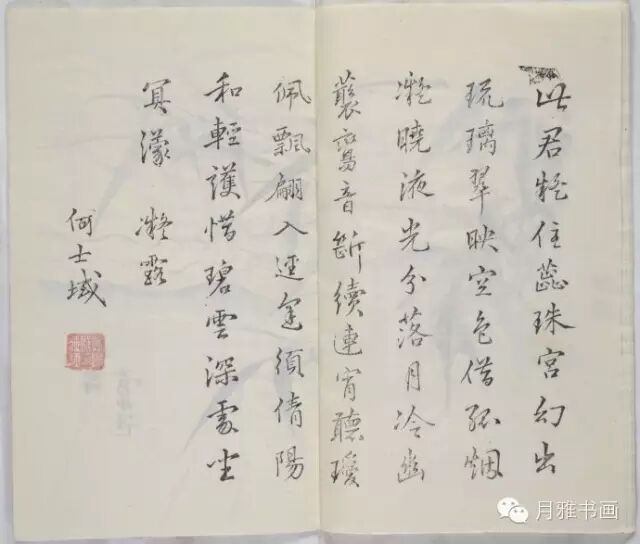 此君疑住蕊珠宮幻出
琉璃翠映空色借孤烟
凝曉液光分落月冷幽
叢鸞音斷續連宵聽瓊
佩飄翩入逕須倩陽
和輕護惜碧雲深處坐
冥濛 凝露
何士域
月雅书画